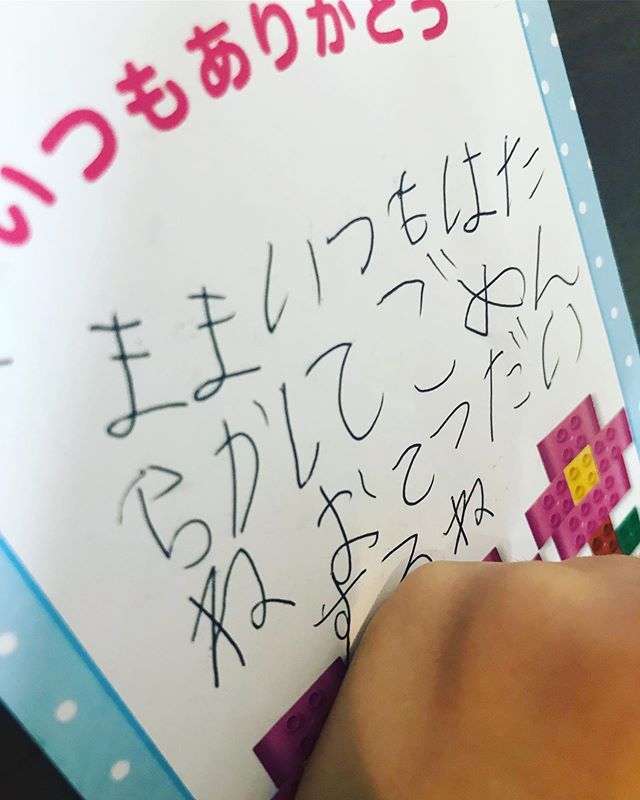 いつもありがとう
ままいつもはた
らかしてごめん
ね おてつだい
するね